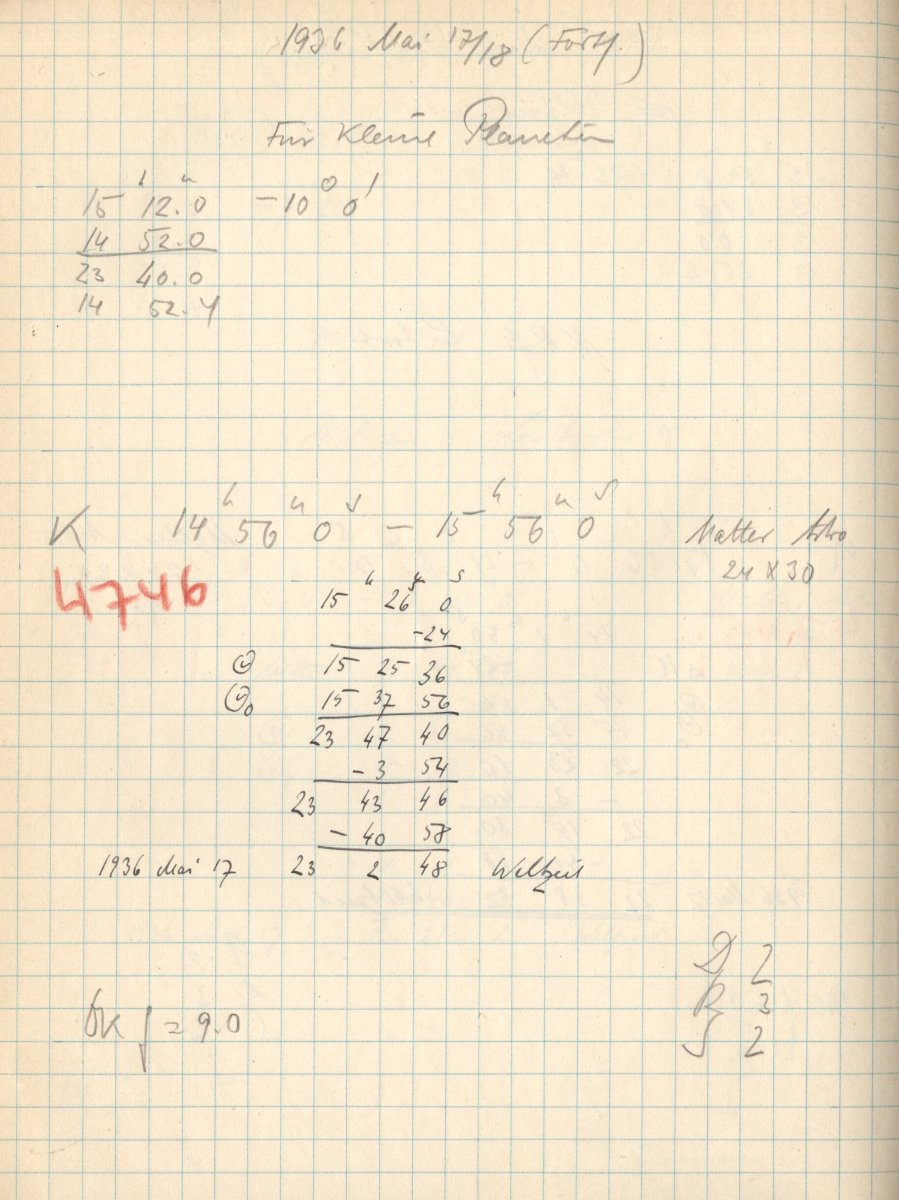 1936 Mai 17/18 (Forts.)
Für Kleine Planeten
15ʰ 12.0ᵐ -10° 0'
14 52.0
23 40.0
14 52.4
K 14ʰ 56ᵐ 0ˢ - 15ʰ 56ᵐ 0ˢ Matter Astro
24 x 30
4746
15ʰ 26ᵐ 0ˢ
-24
15 25 36
15 37 56
23 47 40
-3 54
23 43 46
-40 58
1936 Mai 17 23 2 48 Weltzeit
D 2
R 3
S 2
OK f = 9.0